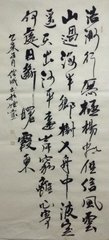 浩渺行无極揚帆但信風雲
山過海半鄉樹入舟中波定
遥天出沙平遠岸窮離心寄
何處目斷曙霞東